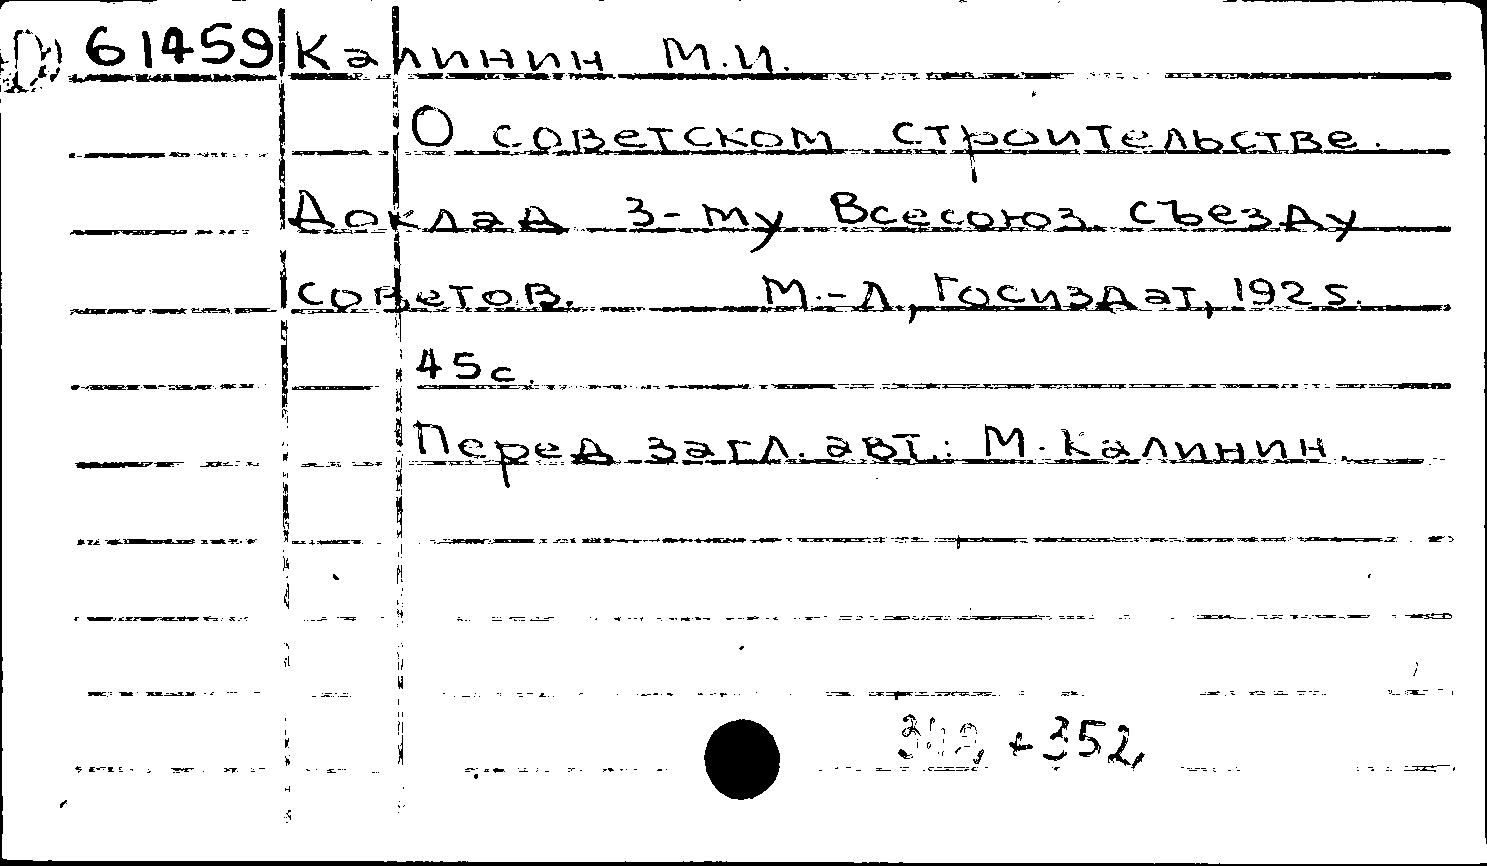 D) 61459 Калинин М.И.
О советском строительстве.
Доклад 3-му Всесоюз. съезду
советов. М.-Л., Госиздат, 1925.
45с.
Перед загл. авт.: М. Калинин.
+352